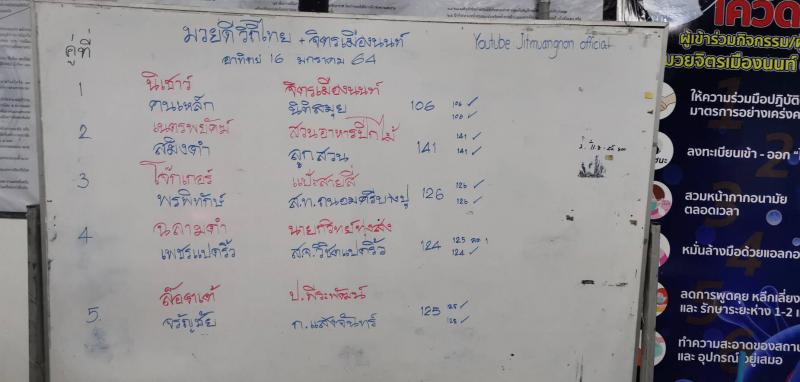 มวยดีวิถีไทย + จิตรเมืองนนท์
Youtube Jitmuangnon official
อาทิตย์ 16 มกราคม 64
คู่ที่
1 นิเชาว์ จิตรเมืองนนท์
คนเหล็ก นิติสมุย 106 106 ✓
106 ✓
2 เนตรพยัคฆ์ สวนอาหารปีกไม้
สมิงดำ ลูกสวน 141 141 ✓
141 ✓
3 โจ๊กเกอร์ แป๊ะสายสี่
พรพิทักษ์ ส.ท.ถนอมศรีบางปู 126 126 ✓
126 ✓
4 ฉลามดำ นายกวิทย์ทุ่งส่ง
เพชรแปดริ้ว สจ.วิเชตแปดริ้ว 124 125
124 ✓
5. ป.พีระพัฒน์
จรัญชัย ก.แสงจันทร์ 125 125 ✓
125 ✓
โควิด
ผู้เข้าร่วมกิจกรรม/
มวยจิตรเมืองนนท์
ให้ความร่วมมือปฏิบัติ
มาตรการอย่างเคร่งค
ลงทะเบียนเข้า - ออก
สวมหน้ากากอนามัย
ตลอดเวลา
หมั่นล้างมือด้วยแอลกอ
ลดการพูดคุย หลีกเลี่ยง
และ รักษาระยะห่าง 1-2 เ
ทำความสะอาดของสถาน
และ อุปกรณ์ อยู่เสมอ